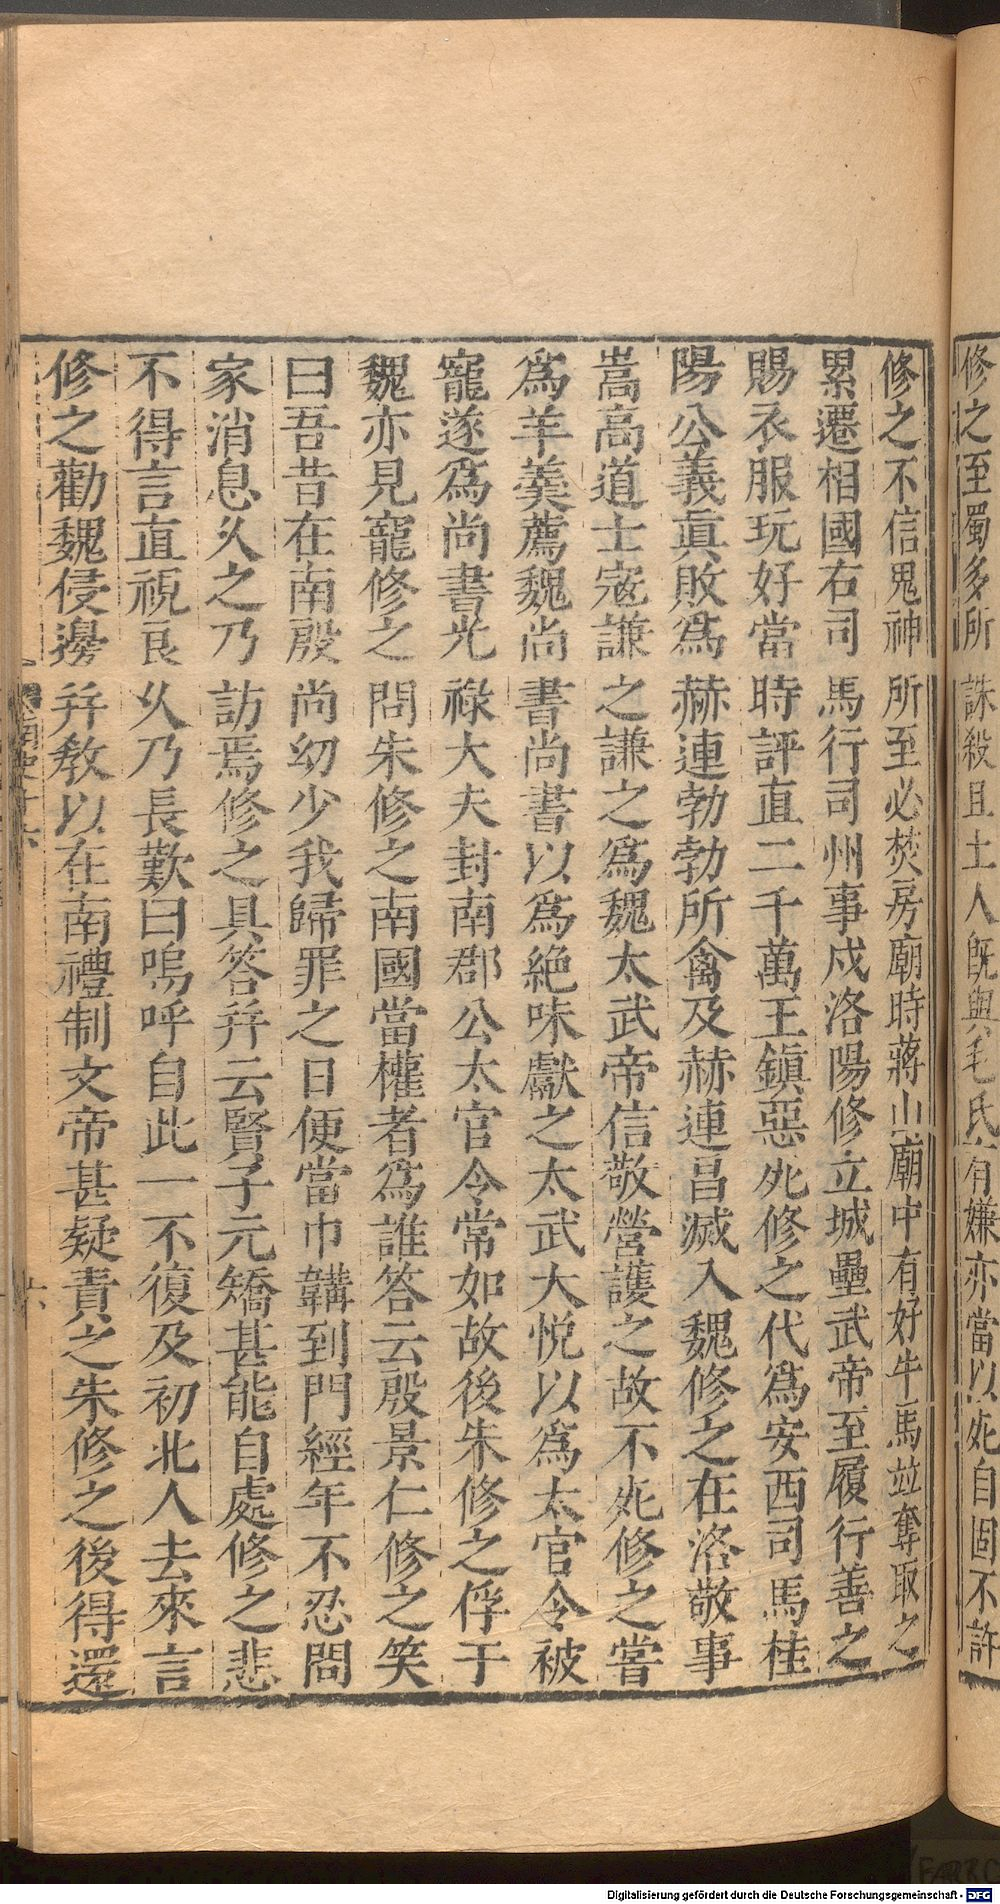 修之至蜀多所誅殺且土人既與毛氏有嫌亦當以死自固不許
修之不信鬼神所至必焚房廟時蔣山廟中有好牛馬並奪取之
累遷相國右司馬行司州事戍洛陽修立城壘武帝至履行善之
賜衣服玩好當時評直二千萬王鎮惡死修之代爲安西司馬桂
陽公義眞敗爲赫連勃勃所禽及赫連昌滅入魏修之在洛敬事
嵩高道士寇謙之謙之爲魏太武帝信敬營護之故不死修之嘗
爲羊羹薦魏尚書尚書以爲絕味獻之太武大悅以爲太官令被
寵遂爲尚書光祿大夫封南郡公太官令常如故後朱修之俘于
魏亦見寵修之問朱修之南國當權者爲誰答云殷景仁修之笑
曰吾昔在南殷尚幼少我歸罪之日便當巾韝到門經年不忍問
家消息久之乃訪焉修之具答并云賢子元矯甚能自處修之悲
不得言直視良久乃長歎曰嗚呼自此一不復及初北人去來言
修之勸魏侵邊并教以在南禮制文帝甚疑責之朱修之後得還
六
Digitalisierung gefördert durch die Deutsche Forschungsgemeinschaft - DFG